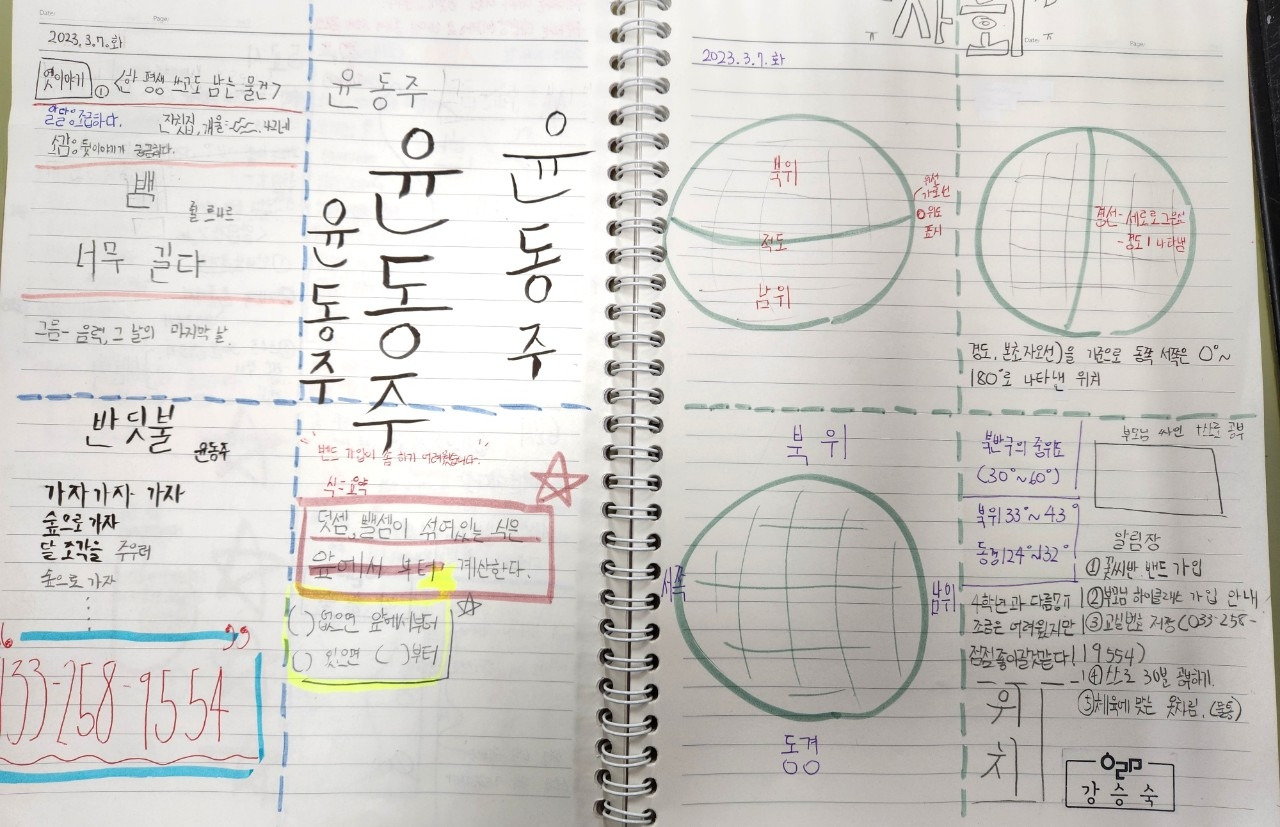 2023.3.7.화
옛이야기 ① <한 평생 쓰고도 남는 물건>
소감: 뒷이야기가 궁금하다.
뱀
쥘 르나르
너무 길다
그믐- 음력, 그 날의 마지막 날.
윤동주
윤동주
윤동주
윤동주
반딧불
윤동주
가자 가자 가자
숲으로 가자
달 조각을 주우러
숲으로 가자
33-258-9554
밴드 가입이 좀 하기 어려웠습니다.
식=요약
덧셈, 뺄셈이 섞여있는 식은
앞에서 부터 계산한다.
( ) 없으면 앞에서부터
( ) 있으면 ( )부터
Date:
Page:
2023.3.7.화
북위
적도
남위
위선
가로선
위도
표시
경선-세로로 그은선
-경도 나타냄
경도, 본초자오선)을 기준으로 동쪽 서쪽은 0°~
180°로 나타낸 위치
북위
서쪽
남위
동경
북반구의 중위도
(30°~60°)
북위 33°~43
동경124°~132°
4학년과 다름ㅠㅠ
조금은 어려웠지만
점점 좋아질것같다!
위치
부모님 싸인
알림장
① 꽃씨반 밴드 가입
② 부모님 하이클래스 가입 안내
③ 교실번호 저장(033-258-
9554)
④ 스스로 30분 공부하기.
⑤ 체육에 맞는 옷차림. (물통)
강승숙